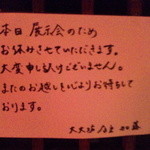 本日 展示会のため
お休みさせていただきます。
大変申し訳ございません。
またのお越しを心よりお待ちして
おります。
店主